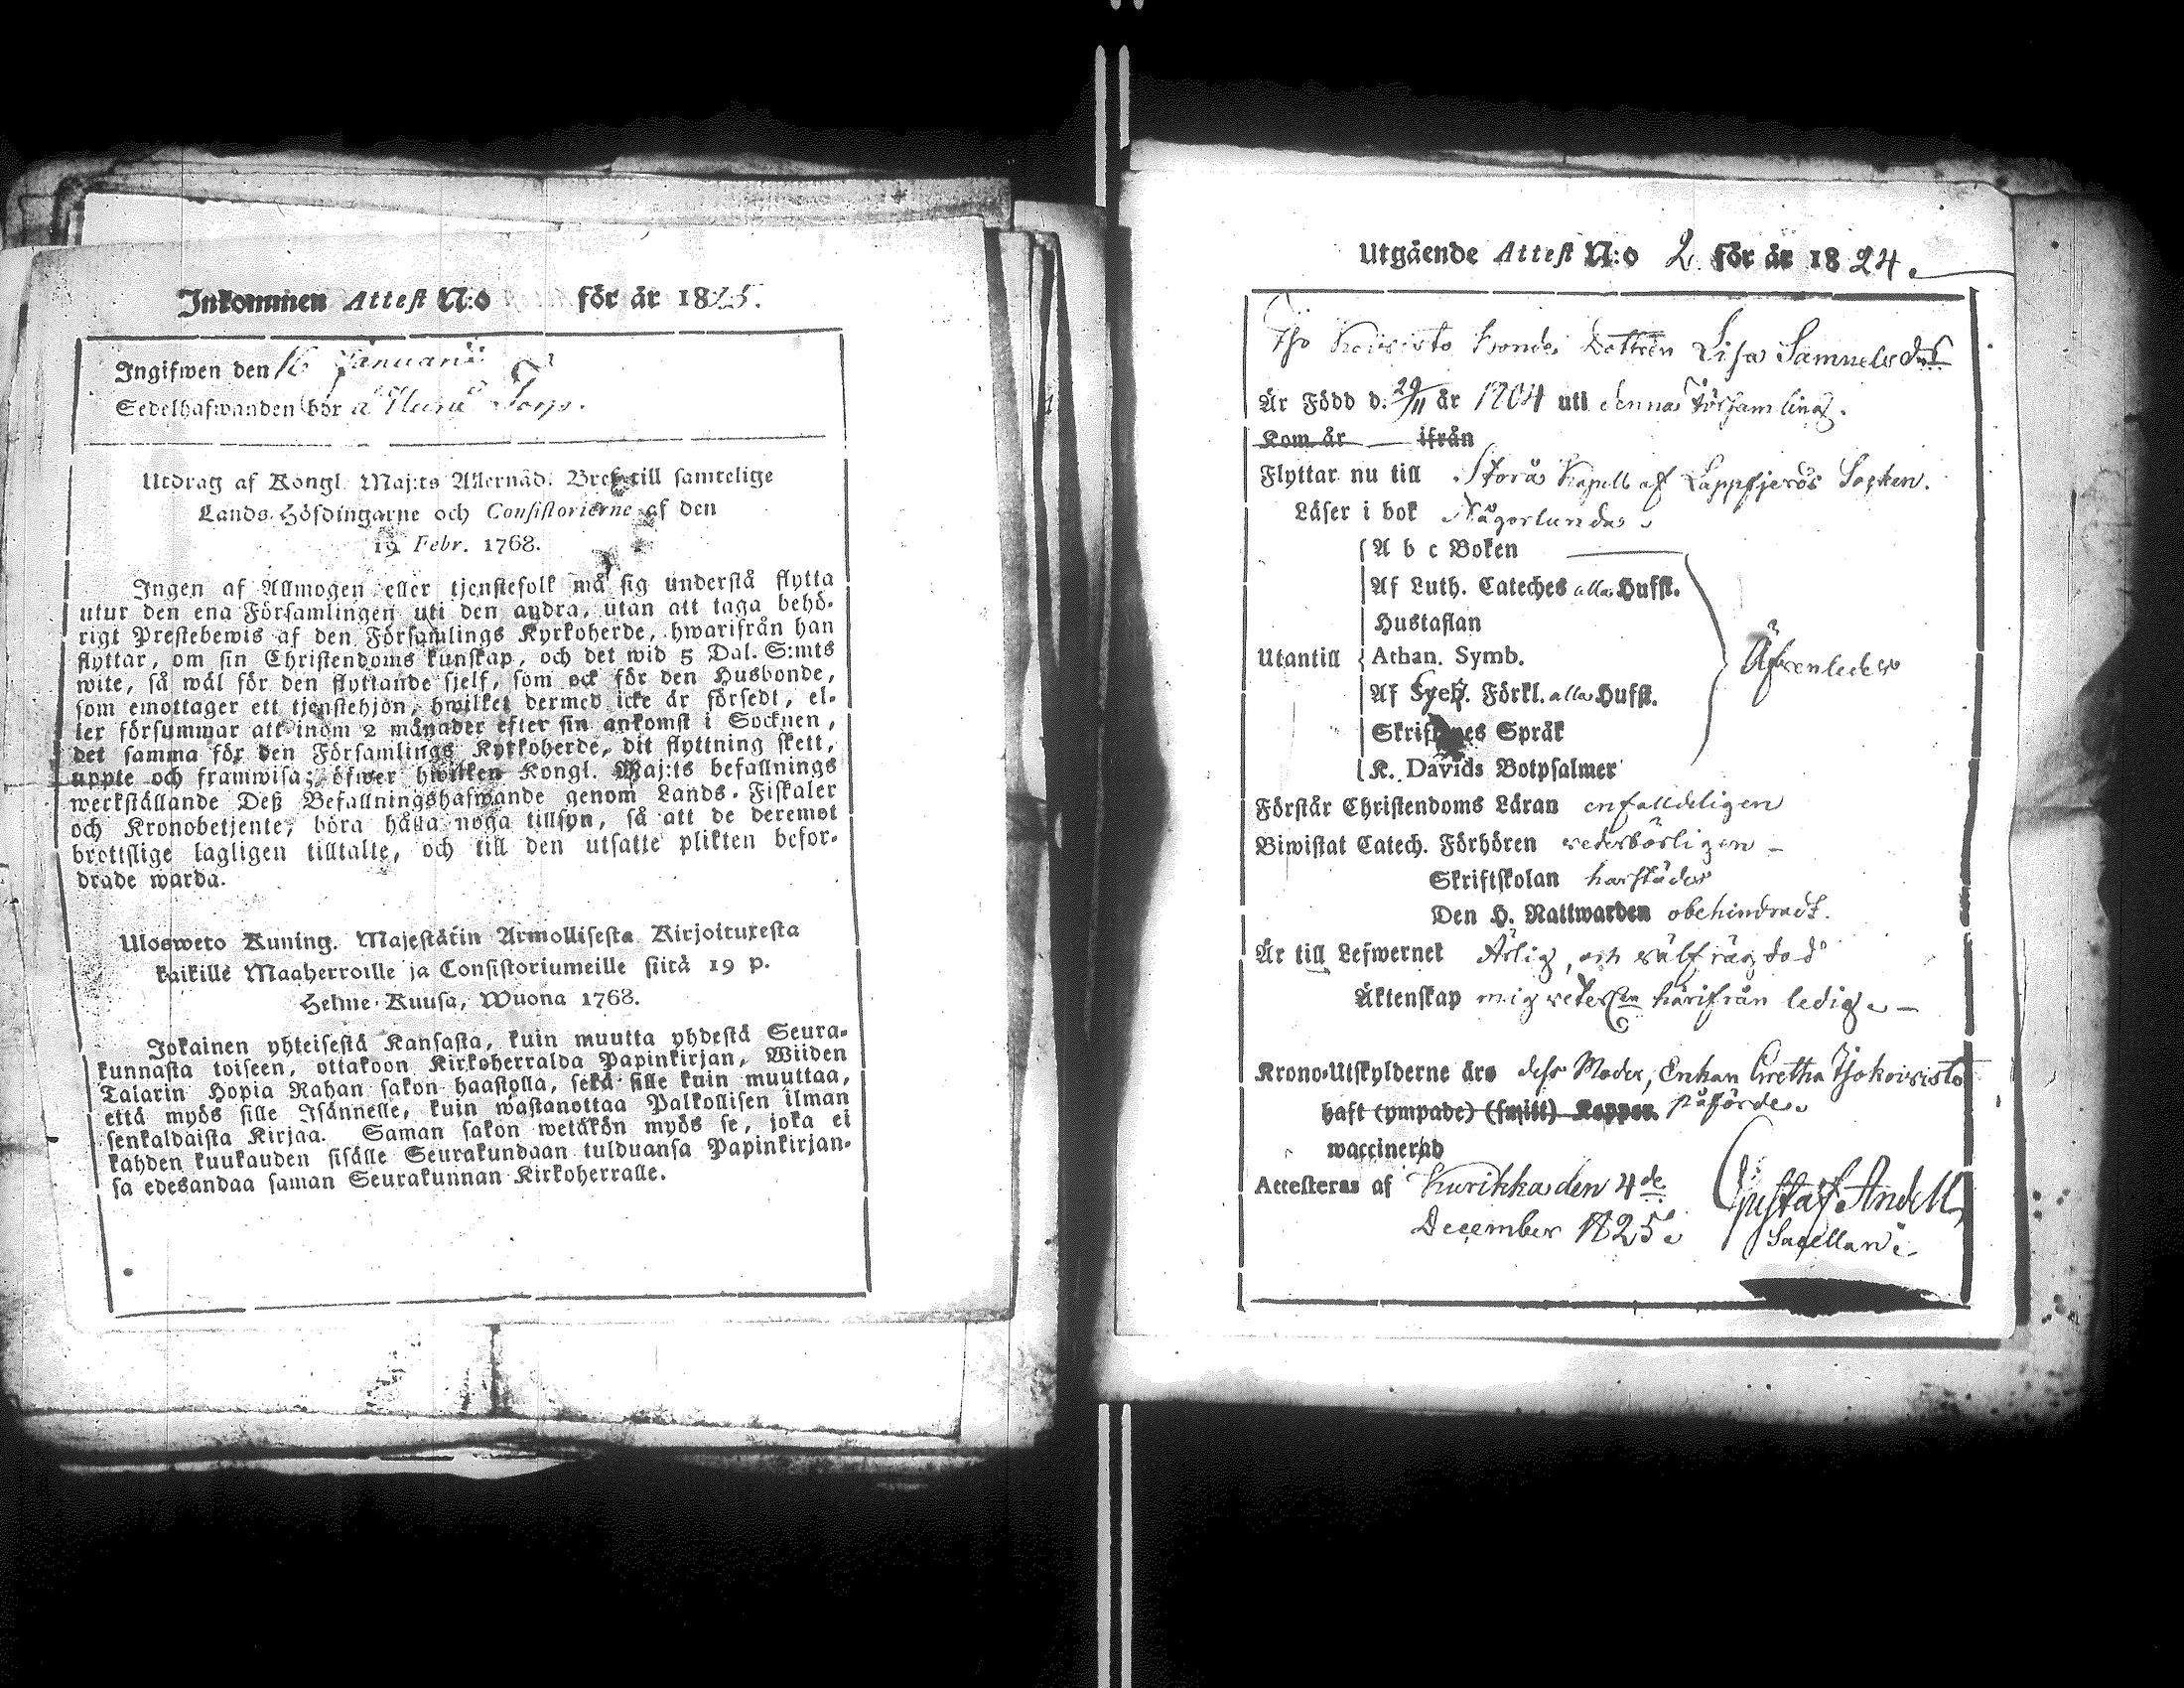 Inkommen Attest N:o för år 1825.
Ingifwen den 16 Januarii
Sedelhafwanden bör å Torp.
Utdrag af Kongl. Maj:ts Allernåd. Bref till samtelige
Lands-Höfdingarne och Consistorierne af den
19 Febr. 1768.
Ingen af Allmogen eller tjenstefolk må sig understå flytta
utur den ena Församlingen uti den andra, utan att taga behö-
rigt Prestebewis af den Församlings Kyrkoherde, hwarifrån han
flyttar, om sin Christendoms kunskap, och det wid 5 Dal. S:mts
wite, så wäl för den flyttande sjelf, som ock för den Husbonde,
som emottager ett tjenstehjon, hwilket dermed icke är försedt, el-
ler försummar att inom 2 månader efter sin ankomst i Socknen,
det samma för den Församlings Kyrkoherde, dit flyttning skett,
uppte och framwisa; öfwer hwilken Kongl. Maj:ts befallnings
werkställande Deß Befallningshafwande genom Lands-Fiskaler
och Kronobetjente, böra hålla noga tillsyn, så att de deremot
brottslige lagligen tilltalte, och till den utsatte plikten befor-
drade warda.
Ulosweto Kuning. Majestätin Armollisesta Kirjoituxesta
kaikille Maaherroille ja Consistoriumeille siitä 19 p.
Helme-Kuusa, Wuona 1768.
Jokainen yhteisestä Kansasta, kuin muutta yhdestä Seura-
kunnasta toiseen, ottakoon Kirkoherralda Papinkirjan, Wiiden
Talarin Hopia Rahan sakon haastolla, sekä sille kuin muuttaa,
että myös sille Isännelle, kuin wastanottaa Palkollisen ilman
senkaldaista Kirjaa. Saman sakon wetäkön myös se, joka ei
kahden kuukauden sisälle Seurakundaan tulduansa Papinkirjan-
sa edesandaa saman Seurakunnan Kirkoherralle.
Utgående Attest N:o 2 för år 1824.
Bonde Dottren Lisa Samuelsdr
Är Född d. 29/11 år 1804 uti denna Församling.
Kom år ifrån
Flyttar nu till Storå Kapell af Lappfjerds Socken.
Läser i bok Någorlunda
A b c Boken
Af Luth. Cateches alla Hufst.
Hustaflan
Utantill Athan. Symb. Äfvenledes
Af Sveb. Förkl. alla Hufst.
Skriftenes Språk
K. Davids Botpsalmer
Förstår Christendoms Läran enfalldeligen
Biwistat Catech. Förhören vederbörligen
Skriftskolan härstädes
Den H. Nattwarden obehindradt.
Är till Lefwernet Ärlig och välfrägdad
Äktenskap mig veterl:n härifrån ledig
Krono-Utskylderne äro dess Moder, Enkan Gretha Tjokoivisto
haft (ympade) (smitt) Koppor påförde
waccinerad
Attesteras af Kurikka den 4de Gustaf Andell
December 1825. Sacellan